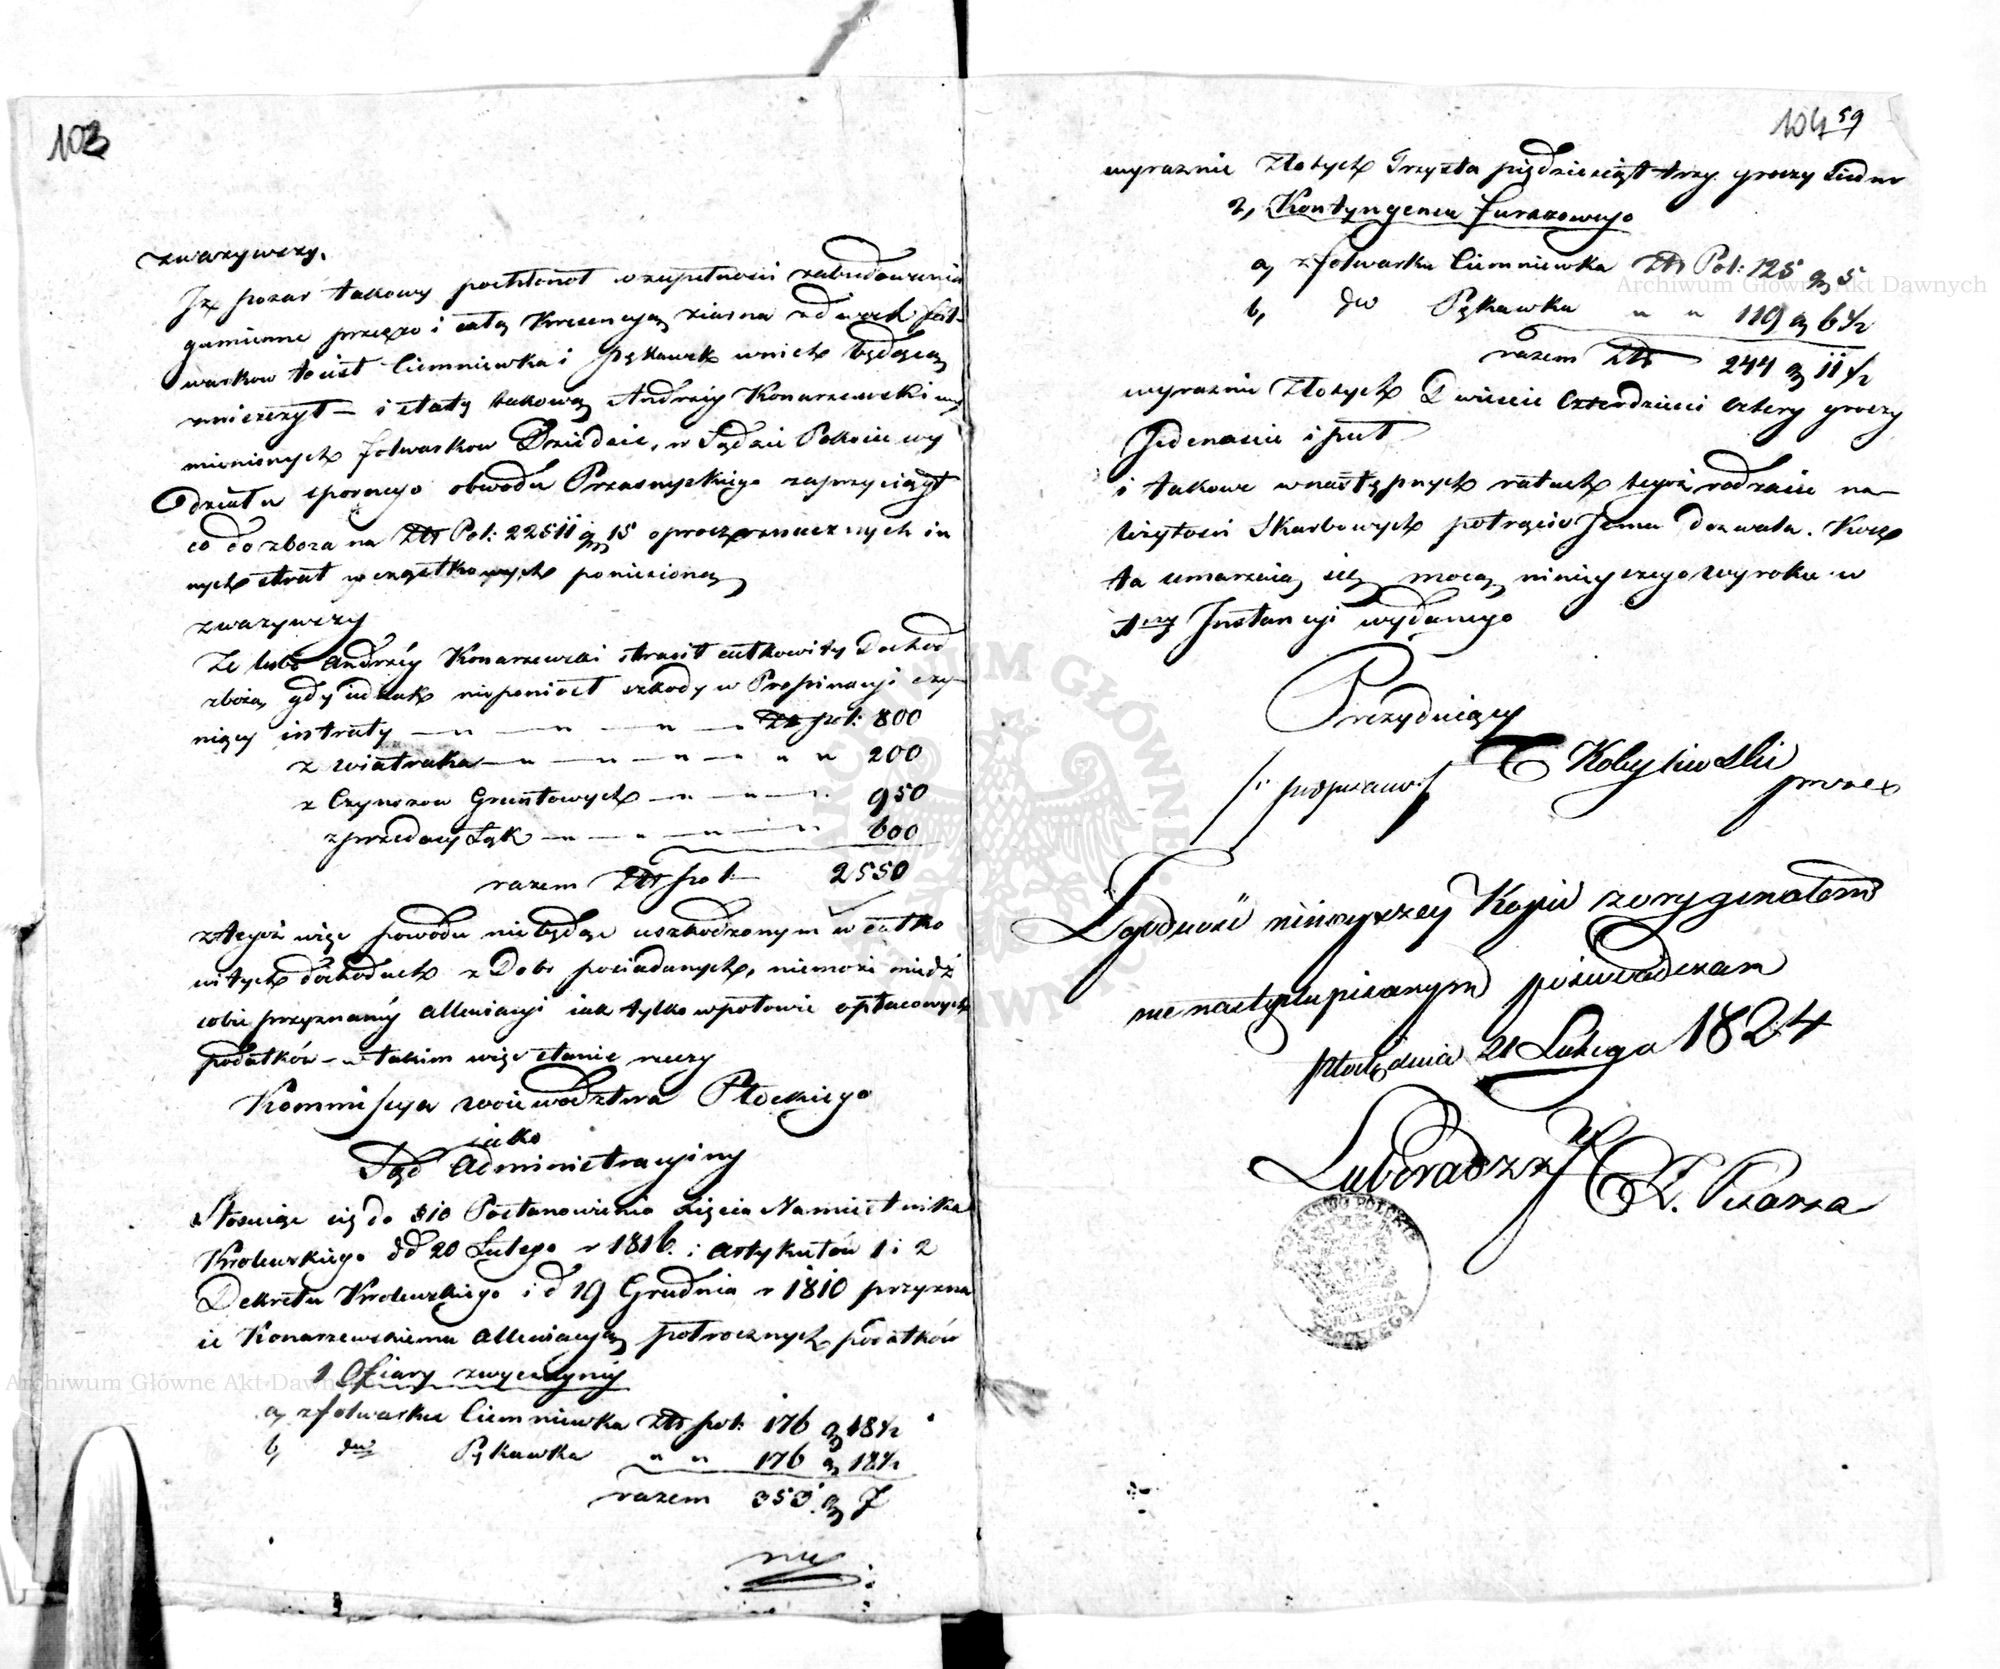 103
zwazywszy.
Iż pożar takowy pochłonoł w zupełności zabudowania
gumienne przeszło i całą Krescencyą ziarna z dwoch fol-
warkow to iest Ciemniewka i Pękawek w nich będącą
zniszczył – i stratę takową Andrzey Konarzewski wy
mienionych folwarkow Dziedzic, w Sądzie Pokoiu wy
działu spornego obwodu Przasnyskiego zaprzysiągł
co do zboza na Złł Pol: 22511 gr 15 oprocz nieoznacznych in
nych strat w cząstkowych poniesioną
zwazywszy
Ze lubo Andrzéy Konarzewski stracił całkowity Dochod
zboża, gdy iednak nie poniosł szkody w Propinacyi czy-
niący intraty — " — " — " — Zł pol: 800
z wiatraka — " — " — " — " " 200
z Czynszow Gruntowych — " — " — " 950
z przedaży Łąk — " — " — " — " 600
razem Złł pol: 2550
z tegoż więc powodu nie będąc uszkodzonym w całko
witych dochodach z Dobr posiadanych, niemoże mieć
sobie przyznaney allewiacyi iak tylko w połowie opłacowych
podatków – w takim więc stanie rzeczy
Kommissya Woiewodztwa Płockiego
iako
Sąd Administracyiny
Stosuiąc się do § 10 Postanowienia Xięcia Namiestnika
Krolewskiego dd 20 Lutego r 1816. i artykułów 1 i 2
Dekretu Krolewskiego i d 19 Grudnia r 1810 przyzna
ie Konarzewskiemu allewiacyą połrocznych podatków
1 Ofiary zwyczayney
a, z folwarku Ciemniewka Złł pol: 176 gr 18½
b, dto Pękawka " " 176 gr 18½
razem 353 gr 7
wy
104 59
wyraznie Złotych Trzysta pięдdziesiąt trzy groszy siedm
2, Kontyngensu furazowego
a, z folwarku Ciemniewka Złł Pol: 125 gr 5
b, dto Pękawka " " 119 gr 6½
razem Złł 244 gr 11½
wyraznie Złotych Dwieście Czterdzieści cztery groszy
Jedenaście i puł
i takowe w następnych ratach tegoż rodzaiu na-
leżytości Skarbowych potrącic Jemu dozwala. Kosz
ta umarzaią się mocą ninieyszego Wyroku w
1szey Instancyi wydanego
Prezyduiący
/: podpisano :/ Kobyliński
prezes
Zgodność ninieyszey Kopii z oryginałem
nie na stęplu pisanym poświadczam
Płock dnia 21 Lutego 1824
Luboradzki
Z. Pisarza
Archiwum Główne Akt Dawnych
Archiwum Główne Akt Dawnych
ARCHIWUM GŁÓWNE AKT DAWNYCH